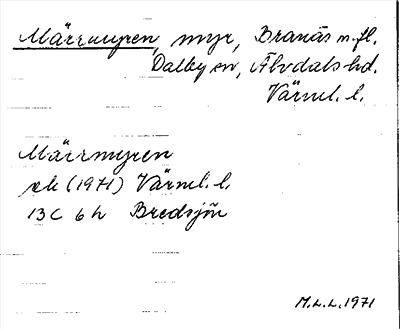 Märrmyren, myr, Branäs m.fl.
Dalby sn, Älvdals hd.
Värml. l.
Märrmyren
ek (1971) Värml. l.
13C 6h Bredsjön
M.L.L. 1971